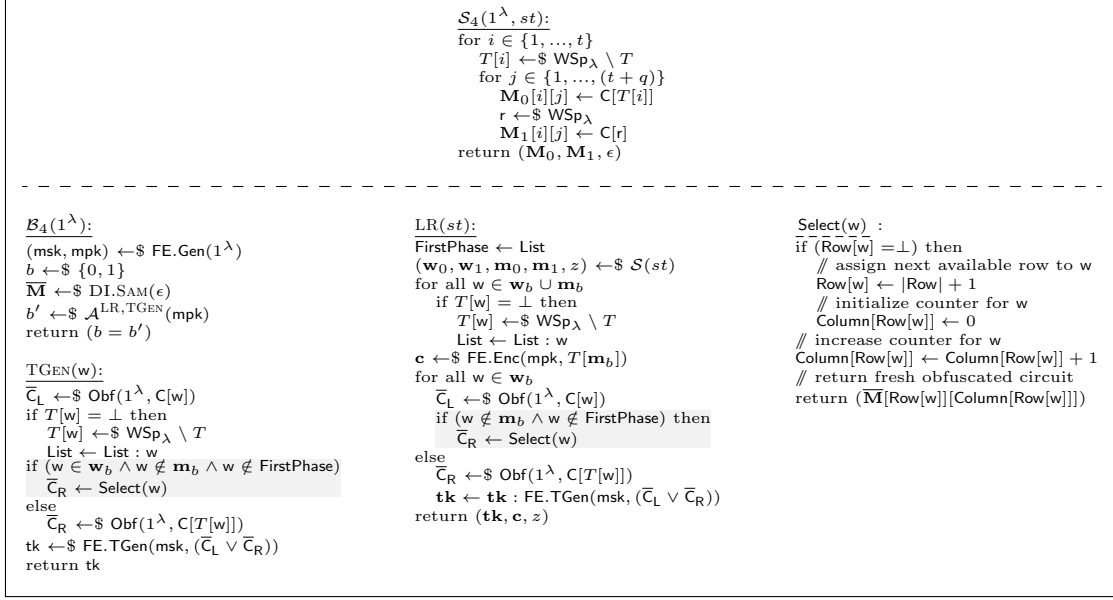 𝒮₄(1^λ, st):
for i ∈ {1, ..., t}
T[i] ←$ WSp_λ \ T
for j ∈ {1, ..., (t + q)}
M₀[i][j] ← C[T[i]]
r ←$ WSp_λ
M₁[i][j] ← C[r]
return (M₀, M₁, ϵ)
ℬ₄(1^λ):
(msk, mpk) ←$ FE.Gen(1^λ)
b ←$ {0, 1}
M̅ ←$ DI.Sam(ϵ)
b′ ←$ 𝒜^{LR,TGen}(mpk)
return (b = b′)
TGen(w):
C̅_L ←$ Obf(1^λ, C[w])
if T[w] = ⊥ then
T[w] ←$ WSp_λ \ T
List ← List : w
if (w ∈ w_b ∧ w ∉ m_b ∧ w ∉ FirstPhase)
C̅_R ← Select(w)
else
C̅_R ←$ Obf(1^λ, C[T[w]])
tk ←$ FE.TGen(msk, (C̅_L ∨ C̅_R))
return tk
LR(st):
FirstPhase ← List
(w₀, w₁, m₀, m₁, z) ←$ 𝒮(st)
for all w ∈ w_b ∪ m_b
if T[w] = ⊥ then
T[w] ←$ WSp_λ \ T
List ← List : w
c ←$ FE.Enc(mpk, T[m_b])
for all w ∈ w_b
C̅_L ←$ Obf(1^λ, C[w])
if (w ∉ m_b ∧ w ∉ FirstPhase) then
C̅_R ← Select(w)
else
C̅_R ←$ Obf(1^λ, C[T[w]])
tk ← tk : FE.TGen(msk, (C̅_L ∨ C̅_R))
return (tk, c, z)
Select(w) :
if (Row[w] =⊥) then
// assign next available row to w
Row[w] ← |Row| + 1
// initialize counter for w
Column[Row[w]] ← 0
// increase counter for w
Column[Row[w]] ← Column[Row[w]] + 1
// return fresh obfuscated circuit
return (M̅[Row[w]][Column[Row[w]]])